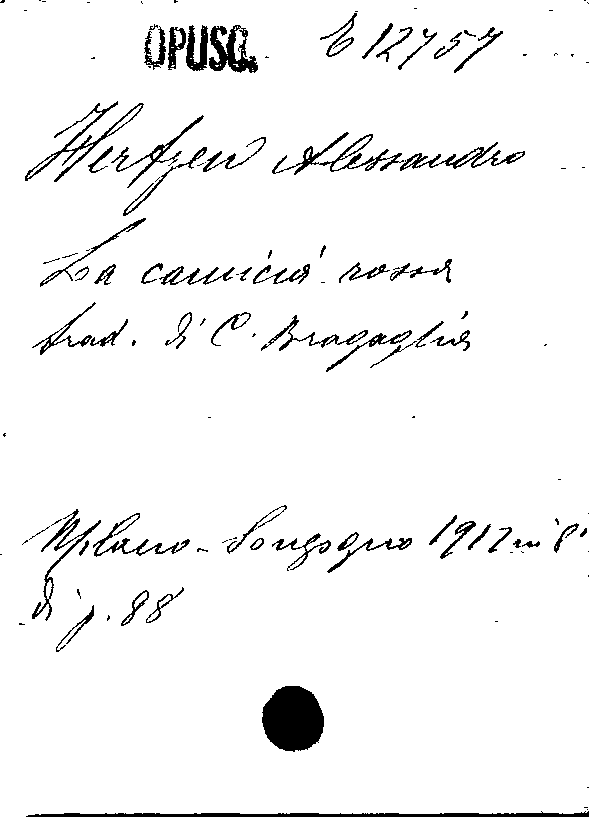 OPUSC. E 12757
Hertzen Alessandro
La camicia rossa
trad. di C. Bragaglia
Milano - Sonzogno 1912 in 8°
di p. 88